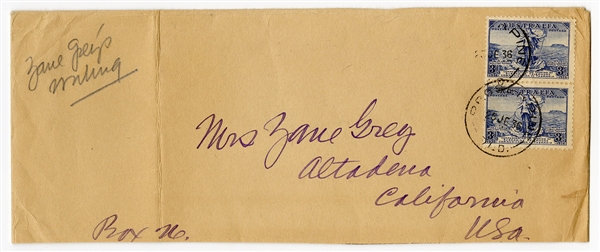 Zane Grey's
writing
AUSTRALIA
JE 36
AUSTRALIA
JE 36
Mrs Zane Grey
Altadena
California
USa.
Box N.